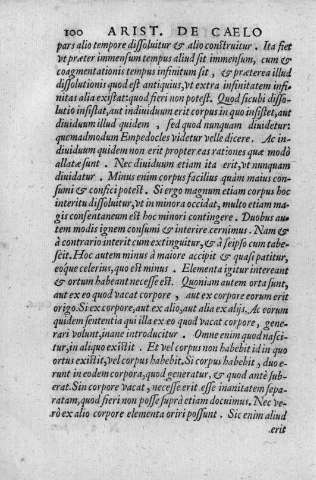 100 ARIST. DE CAELO
pars alio tempore dissoluitur & alio construitur. Ita fiet
vt præter immensum tempus aliud sit immensum, cum &
coagmentationis tempus infinitum sit, & præterea illud
dissolutionis quod est antiquius, vt extra infinitatem infi
nitas alia existat: quod fieri non potest. Quod sicubi disso-
lutio insistat, aut indiuiduum erit corpus in quo insistet, aut
diuiduum illud quidem, sed quod nunquam diuidetur:
quemadmodum Empedocles videtur velle dicere. Ac in-
diuiduum quidem non erit propter eas rationes quæ modò
allatæ sunt. Nec diuiduum etiam ita erit, vt nunquam
diuidatur. Minus enim corpus facilius quàm maius con-
sumi & confici potest. Si ergo magnum etiam corpus hoc
interitu dissoluitur, vt in minora occidat, multo etiam ma-
gis consentaneum est hoc minori contingere. Duobus au-
tem modis ignem consumi & interire cernimus. Nam &
à contrario interit cum extinguitur, & à seipso cum tabe-
scit. Hoc autem minus à maiore accipit & quasi patitur,
eóque celerius, quo est minus. Elementa igitur intereant
& ortum habeant necesse est. Quoniam autem orta sunt,
aut ex eo quod vacat corpore, aut ex corpore eorum erit
origo. Si ex corpore, aut ex alio, aut alia ex alijs. Ac eorum
quidem sententia qui illa ex eo quod vacat corpore, gene-
rari volunt, inane introducitur. Omne enim quod nasci-
tur, in aliquo existit. Et vel corpus non habebit id in quo
ortus existit, vel corpus habebit. Si corpus habebit, duo e-
runt in eodem corpora, quod generatur, & quod antè sub-
erat. Sin corpore vacat, necesse erit esse inanitatem sepa-
ratam, quod fieri non posse suprà etiam docuimus. Nec ve-
rò ex alio corpore elementa oriri possunt. Sic enim aliud
erit